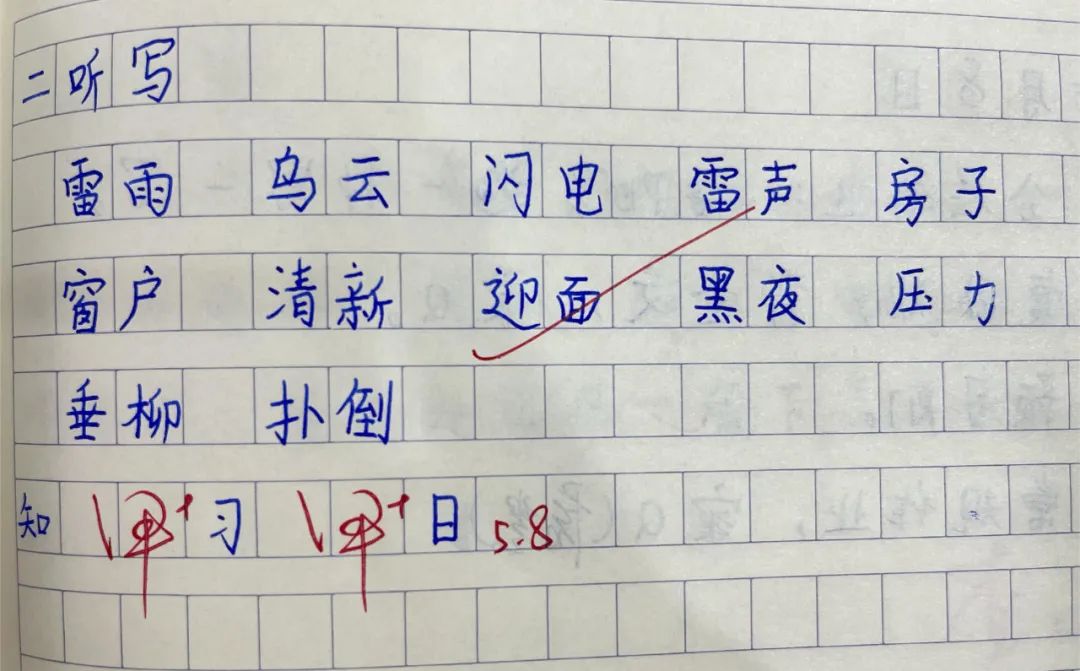 二听写
雷雨 乌云 闪电 雷声 房子
窗户 清新 迎面 黑夜 压力
垂柳 扑倒
知 甲+ 习 甲+ 日 5.8